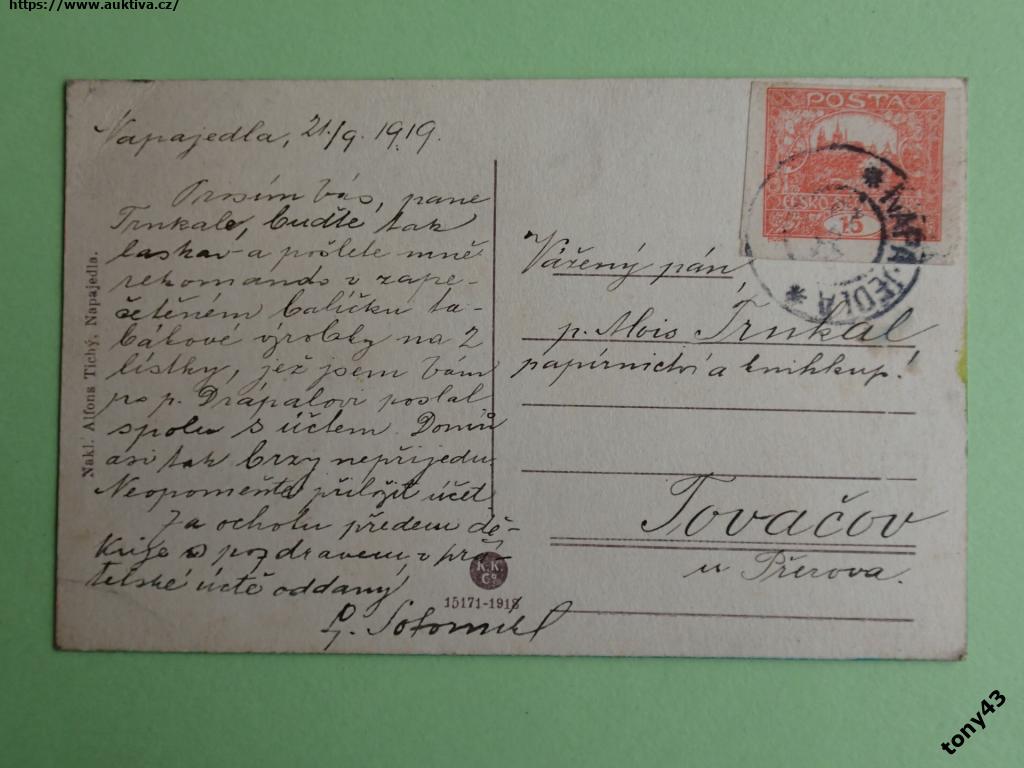 https://www.auktiva.cz/
Napajedla, 21./9. 1919.
Prosím Vás, pane
Trnkale, buďte tak
laskav a pošlete mně
rekomando v zape-
čtěném balíčku ta-
bákové výrobky na 2
lístky, jež jsem Vám
po p. Drápalovi poslal
spolu s účtem. Domů
asi tak brzy nepřijedu.
Neopomeňte přiložit účet
Za ochotu předem dě-
kuje a s pozdravem, v přá-
telské úctě oddaný
Nakl. Alfons Tichý, Napajedla.
K.K.
Co.
15171-1918
POSTA
ČESKO
15
NAPAJEDLA
Vážený pán
p. Alois Trnkal
papírnictví a knihkup.
Tovačov
u Přerova.
tony43